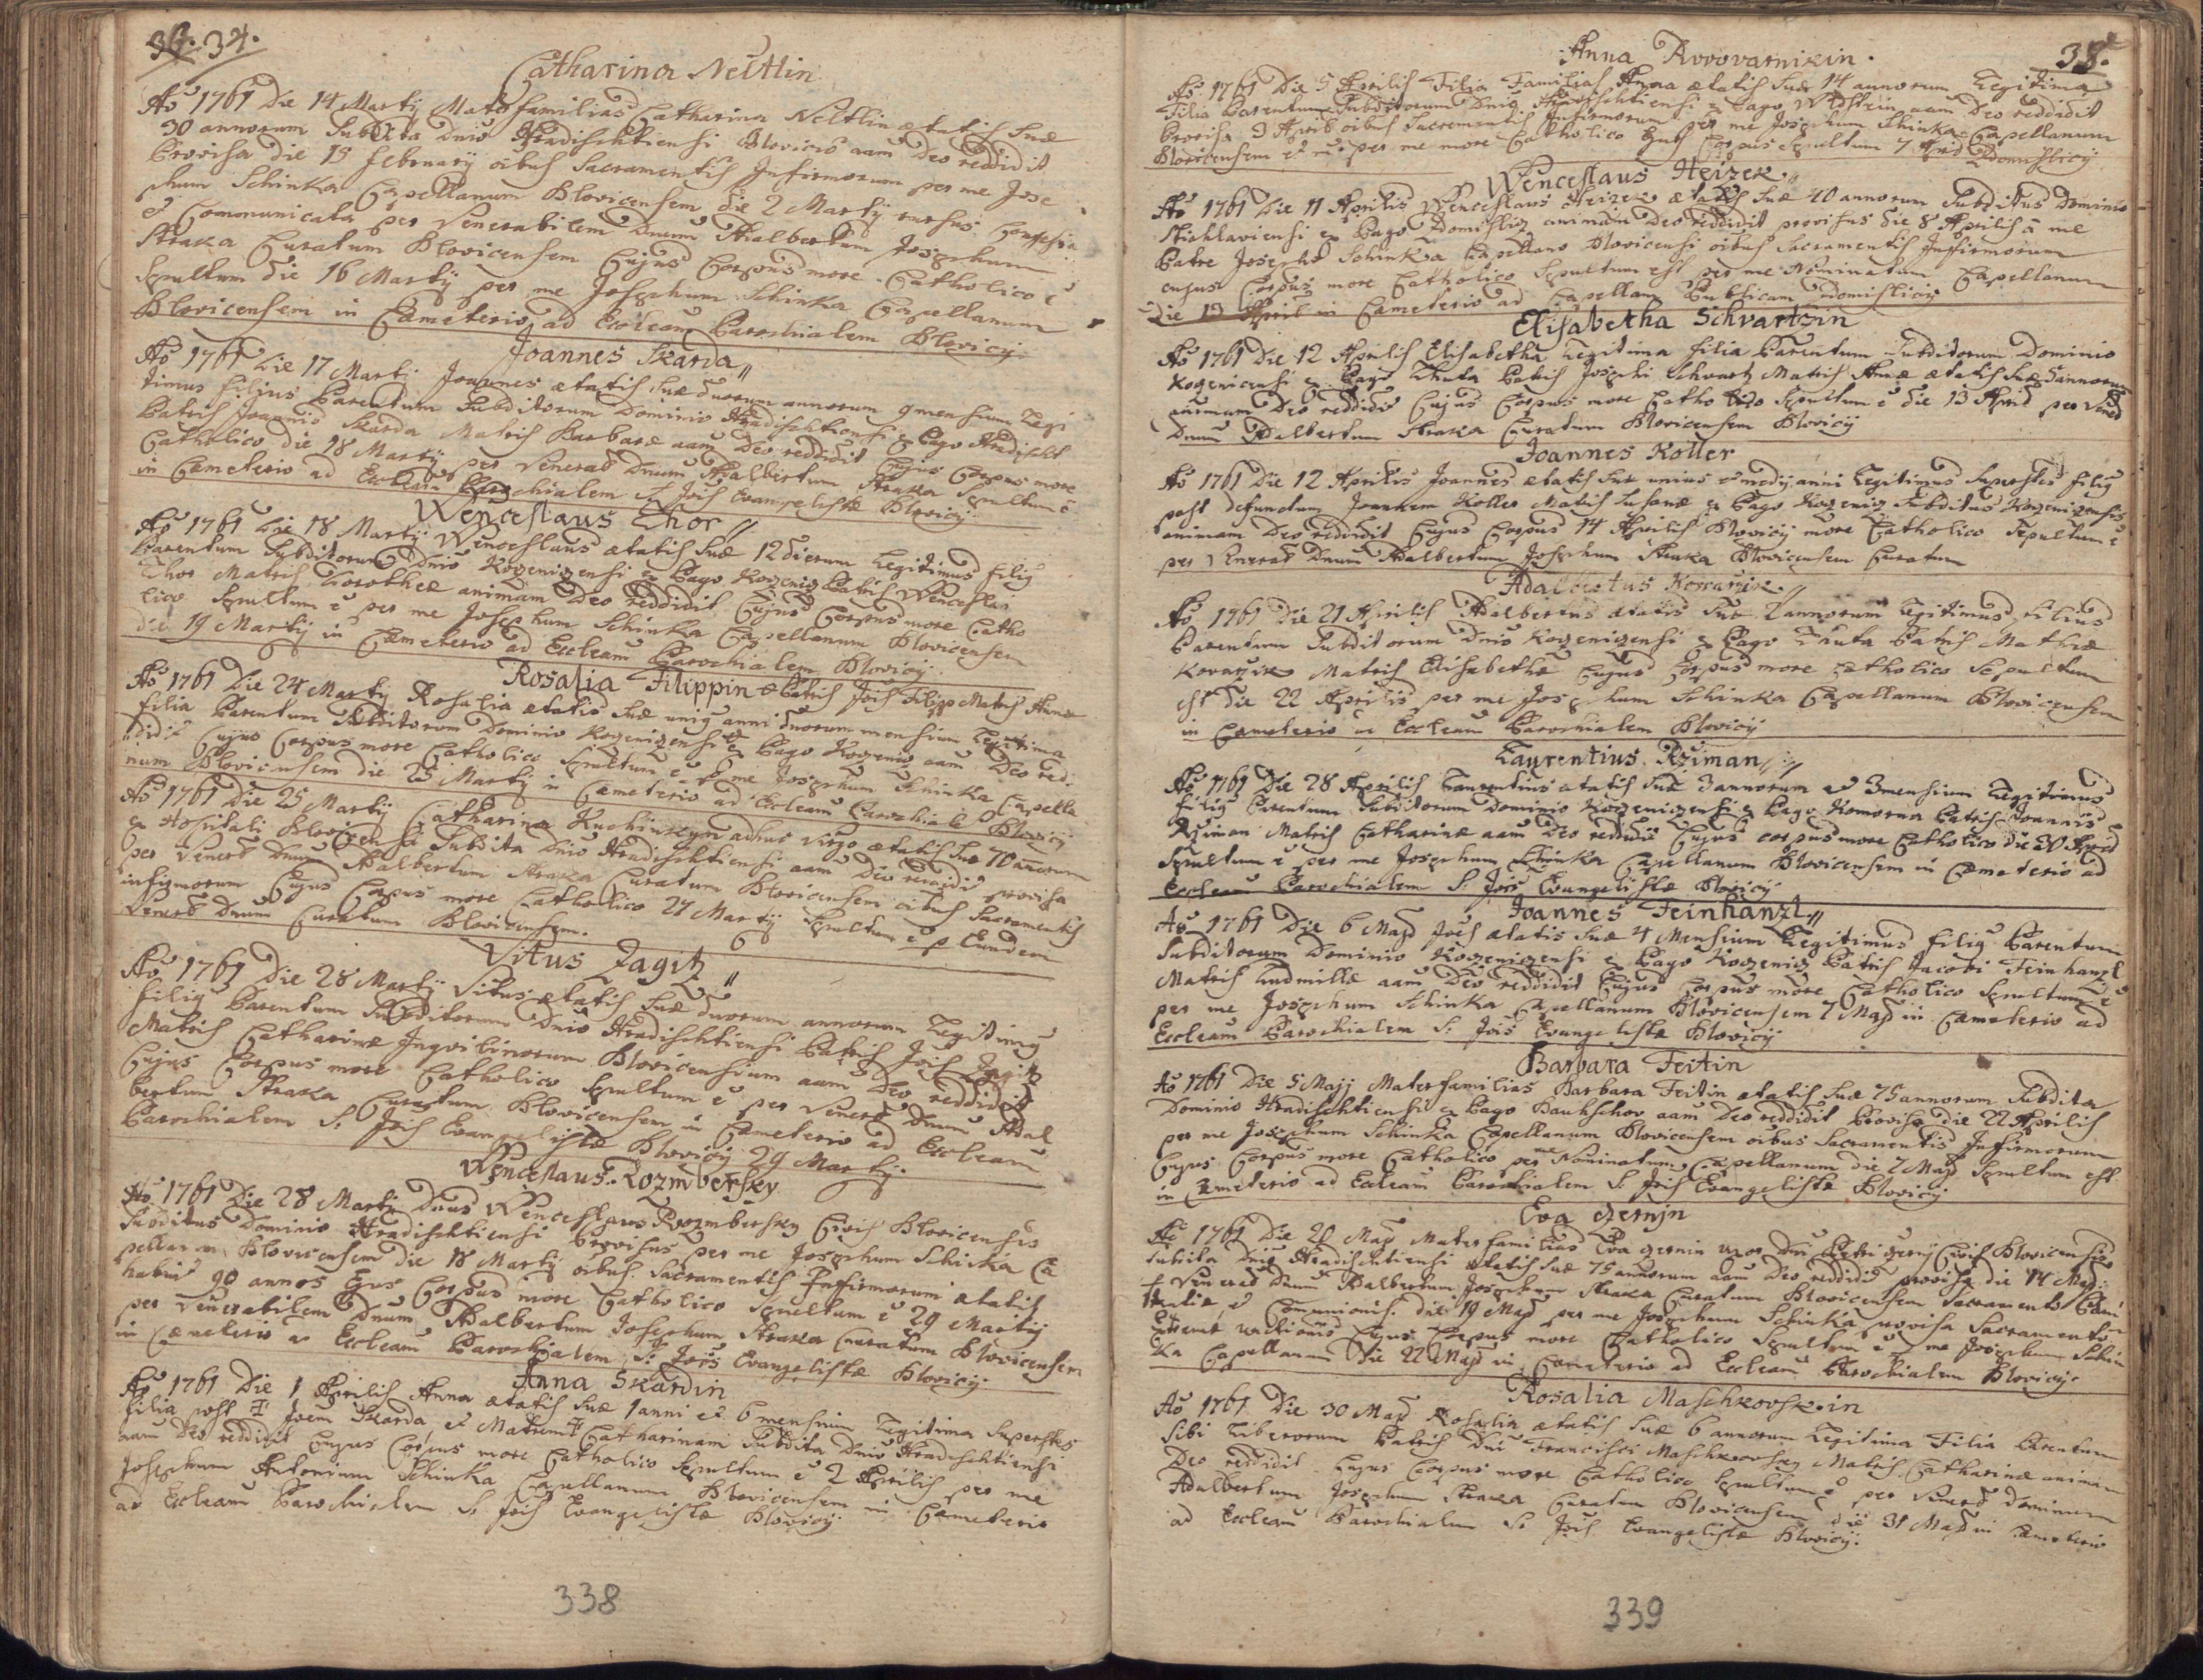 34.
Catharina Neltlin
Ao 1761 Die 14 Martij Mater familias Catharina Neltlin ætatis suæ
30 annorum Subdita Dnio Hradischtiensi Blovicio aam Deo reddidit
Provisa die 15 february oibus Sacramentis Infirmorum per me Jose
phum Schinka Capellanum Blovicensem die 2 Martij rursus Confessa
et Communicata per Venerabilem Dnum Adalbertum Josephum
Straka Curatum Blovicensem Cujus Corpus more Catholico ē
Sepultum die 16 Martij per me Josephum Schinka Capellanum
Blovicensem in Cæmeterio ad Eccleam Parochialem Blovicij
Joannes Skarda
Ao 1761 Die 17 Martij Joannes ætatis suæ duorum annorum 9 mensium Legi
timus filius Parentum Subditorum Dominio Hradischtiensi ex Pago Hradischt
Patris Joannis Skarda Matris Barbaræ aam Deo reddidit Cujus Corpus more
Catholico die 18 Martij per Venerab Dnum Adalbertum Straka Sepultum ē
in Cæmeterio ad Eccleam Parochialem S. Jois Evangelistæ Blovicij
Wenceslaus Chor
Ao 1761 Die 18 Martij Wenceslaus ætatis suæ 12 dierum Legitimus filig
Parentum Subditorum Dnio Kozenizensi ex Pago Kozeniz Patris Wenceslai
Chor Matris Dorotheæ animam Deo reddidit Cujus Corpus more Catho
lico Sepultum ē per me Josephum Schinka Capellanum Blovicensem
die 19 Martij in Cæmeterio ad Eccleam Parochialem Blovicij
Rosalia Filippin Patris Jois Filipp Matris Annæ
Ao 1761 Die 24 Martij Rosalia ætatis suæ unig anni duorum mensium Legitima
filia Parentum Subditorum Dominio Kozenizensi ex Pago Kozeniz aam Deo red
didit Cujus Corpus more Catholico Sepultum ē per me Josephum Schinka Capella
num Blovicensem die 25 Martij in Cæmeterio ad Eccleam Parochiale Blovicij
Ao 1761 Die 25 Martij Catharina Kuchinkyn adhuc Virgo ætatis suæ 70 annorum
ex Hospitali Blovicensi Subdita Dnio Hradischtiensi aam Deo reddidit provisa
per Venerb Dnum Adalbertum Straka Curatum Blovicensem oibus Sacramentis
infirmorum Cujus Corpus more Catholico 27 Martij Sepultum ē p Eundem
Venerb Dnum Curatum Blovicensem.
Vitus Jagitz
Ao 1761 Die 28 Martij Vitus ætatis suæ duorum annorum Legitimg
filig Parentum Subditorum Dnio Hradischtiensi Patris Jois Jagitz
Matris Catharinæ Inqvilinorum Blovicensium aam Deo reddidit
Cujus Corpus more Catholico Sepultum ē per Venerb Dnum Adal
bertum Straka Curatum Blovicensem in Cæmeterio ad Eccleam
Parochialem S. Jois Evangelistæ Blovicij 29 Martij.
Wenceslaus Rozmbersky
Ao 1761 Die 28 Martij Dnus Wenceslaus Rozmbersky Civis Blovicensis
Subditus Dominio Hradischtiensi Provisus per me Josephum Schicka Ca
pellanum Blovicensem die 18 Martij oibus Sacramentis Infirmorum ætatis
habuit 90 annos Ejus Corpus more Catholico Sepultum ē 29 Martij
per Venerabilem Dnum Adalbertum Josephum Straka Curatum Blovicensem
in Cæmeterio ad Eccleam Parochialem S. Jois Evangelistæ Blovicij
Anna Skardin
Ao 1761 Die 1 Aprilis Anna ætatis suæ 1 anni et 6 mensium Legitima Superstes
filia post Joem Skarda et Matrem Catharinam Subdita Dnio Hradischtiensi
aam Deo reddidit Cujus Corpus more Catholico Sepultum ē 2 Aprilis per me
Josephum Antonium Schinka Capellanum Blovicensem in Cæmeterio
ad Eccleam Parochialem S. Jois Evangelistæ Blovicij
338
38.
Anna
Ao 1761 Die 5 Aprilis Filia Familias Anna ætatis suæ 14 annorum Legitima
Filia Parentum Subditorum Dnio ex Pago aam Deo reddidit
Provisa 3 Aprils oibus Sacramentis Infirmorum per me Josephum Schinka Capellanum
Blovicensem et per me more Catholico Corpus Sepultum 7 Aprils Zdomislicij
Wenceslaus Heizek
Ao 1761 Die 11 Aprilis Wenceslaus Heizek ætatis suæ 40 annorum Subditus Dominio
Stiahlaviensi ex Pago Zdomisliz animam Deo reddidit provisus die 8 Aprilis à me
Patre Josepho Schinka Capellano Blovicensi oibus Sacramentis Infirmorum
cujus Corpus more Catholico Sepultum est per me Nominatum Capellanum
die 13 April in Cæmeterio ad Capellam Publicam Zdomislicij
Elisabetha Schvartzin
Ao 1761 Die 12 Aprilis Elisabetha Legitima filia Parentum Subditorum Dominio
Kozenicensi ex Pago Chuta Patris Josephi Schvartz Matris Annæ ætatis suæ 5 annorum
animam Deo reddidit Cujus Corpus more Catholico Sepultum ē die 13 April per Venerb
Dnum Adalbertum Straka Curatum Blovicensem Blovicij
Joannes Koller
Ao 1761 Die 12 Aprilis Joannes ætatis suæ unius et medij anni Legitimus Superstes filig
post defunctum Joannem Koller Matris Susanæ ex Pago Kozeniz Subditus Kozenizensis
animam Deo reddidit Cujus Corpus 14 Aprilis Blovicij more Catholico Sepultum ē
per Venerab Dnum Adalbertum Josephum Straka Blovicensem Curatum
Adalbertus Kovarzik
Ao 1761 Die 21 Aprilis Adalbertus ætatis suæ 2 annorum Legitimus filius
Parentum Subditorum Dnio Kozenizensi ex Pago Chuta Patris Mathiæ
Kovarzik Matris Elisabethæ Cujus Corpus more Catholico Sepultum
est die 22 Aprilis per me Josephum Schinka Capellanum Blovicensem
in Cæmeterio ad Eccleam Parochialem Blovicij
Laurentius Rziman
Ao 1761 Die 28 Aprilis Laurentius ætatis suæ 3 annorum et 3 mensium Legitimus
filig Parentum Subditorum Dominio Kozenizensi ex Pago Komorna Patris Joannis
Rziman Matris Catharinæ aam Deo reddidit Cujus corpus more Catholico die 30 April
Sepultum ē per me Josephum Schinka Capellanum Blovicensem in Cæmeterio ad
Eccleam Parochialem S. Jois Evangelistæ Blovicij
Joannes Feinhanzl
Ao 1761 Die 6 Maij Jois ætatis suæ 4 Mensium Legitimus filig Parentum
Subditorum Dominio Kozenizensi ex Pago Kozeniz Patris Jacobi Feinhanzl
Matris Ludmillæ aam Deo reddidit Cujus Corpus more Catholico Sepultum ē
per me Josephum Schinka Capellanum Blovicensem 7 Maij in Cæmeterio ad
Eccleam Parochialem S. Jois Evangelistæ Blovicij
Barbara Feitin
Ao 1761 Die 5 Maij Materfamilias Barbara Feitin ætatis suæ 75 annorum Subdita
Dominio Hradischtiensi ex Pago Haukschov aam Deo reddidit Provisa die 22 Aprilis
per me Josephum Schinka Capellanum Blovicensem oibus Sacramentis Infirmorum
Cujus Corpus more Catholico per me Nominatum Capellanum die 7 Maij Sepultum est
in Cæmeterio ad Eccleam Parochialem S. Jois Evangelistæ Blovicij
Eva Czernin
Ao 1761 Die 20 Maij Materfamilias Eva Czernin uxor Dni Petri Czerny Civis Blovicensis
Subdita Dnio Hradischtiensi ætatis suæ 75 annorum aam Deo reddidit provisa die 14 Maij
p Venerab Dnum Adalbertum Josephum Straka Curatum Blovicensem Sacramento Pæni
tentiæ et Comunionis. die 19 Maij per me Josephum Schinka provisa Sacramento
Extremæ unctionis Cujus Corpus more Catholico Sepultum ē p me Josephum Schin
ka Capellanum die 22 Maij in Cæmeterio ad Eccleam Parochialem Blovicij.
Rosalia Maschkovskin
Ao 1761 Die 30 Maij Rosalia ætatis suæ 6 annorum Legitima Filia Parentum
Sibi Liberorum Patris Dni Francisci Maschkovsky Matris Catharinæ animam
Deo reddidit Cujus Corpus more Catholico Sepultum ē per Venerb Dominum
Adalbertum Josephum Straka Curatum Blovicensem die 31 Maij in Cæmeterio
ad Eccleam Parochialem S. Jois Evangelistæ Blovicij.
339